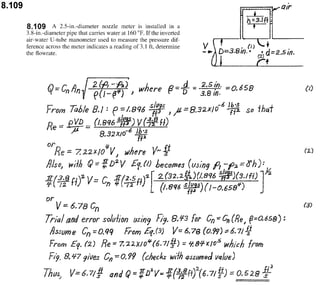 8.109
8.109 A 2.5-in.-diameter nozzle meter is installed in a
3.8-in.-diameter pipe that carries water at 160 °F. If the inverted
air-water U-tube manometer used to measure the pressure dif-
ference across the meter indicates a reading of 3.1 ft, determine
the flowrate.
air
h=3.1ft
V
D=3.8in.
(1)
(2)
d=2.5in.
Q = Cn An √(2(p1-p2)/ρ(1-β⁴)) , where β = d/D = 2.5in./3.8in. = 0.658 (1)
From Table B.1: ρ = 1.896 slugs/ft³ , μ = 8.32x10⁻⁶ lb·s/ft² so that
Re = ρVD/μ = (1.896 slugs/ft³) V (3.8/12 ft) / 8.32x10⁻⁶ lb·s/ft²
or
Re = 7.22x10⁴ V , where V ~ ft/s (2)
Also, with Q = π/4 D² V Eq.(1) becomes (using p1-p2 = γh):
π/4 (3.8/12 ft)² V = Cn π/4 (2.5/12 ft)² [2(32.2 ft/s²)(1.896 slugs/ft³)(3.1ft) / (1.896 slugs/ft³)(1-0.658⁴)]^½
or
V = 6.78 Cn (3)
Trial and error solution using Fig. 8.43 for Cn = Cn(Re, β=0.658):
Assume Cn = 0.99 From Eq.(3) V = 6.78 (0.99) = 6.71 ft/s
From Eq. (2) Re = 7.22x10⁴ (6.71 ft/s) = 4.84x10⁵ which from
Fig. 8.47 gives Cn = 0.99 (checks with assumed value)
Thus, V = 6.71 ft/s and Q = π/4 D² V = π/4 (3.8/12 ft)² (6.71 ft/s) = 0.528 ft³/s